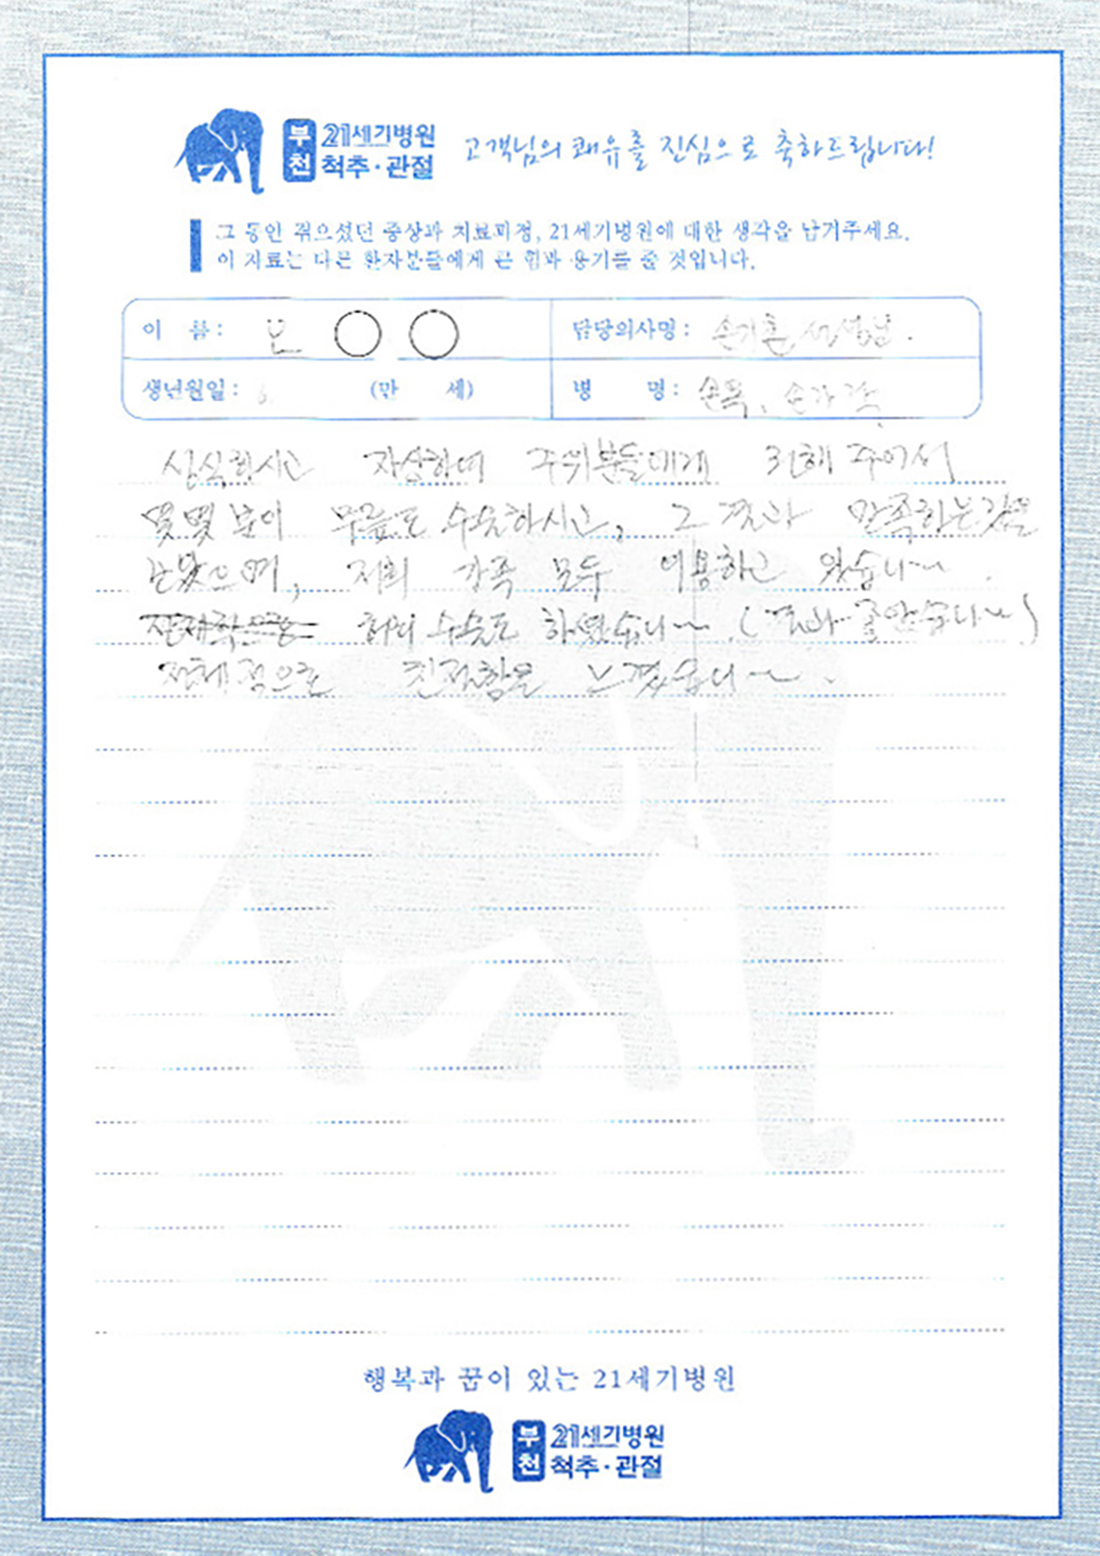 부천 21세기병원 척추·관절
고객님의 쾌유를 진심으로 축하드립니다!
그 동안 겪으셨던 증상과 치료과정, 21세기병원에 대한 생각을 남겨주세요.
이 자료는 다른 환자분들에게 큰 힘과 용기를 줄 것입니다.
이 름 : 모 ○ ○
담당의사명 : 선생님.
생년월일 : (만 세)
병 명 : 손목, 손가락
자상하며 주위분들에게 권해 주어서
몇몇 분이 무릎도 수술하시고, 그 결과 만족하는것을
보았으며, 저희 가족 모두 이용하고 있습니다.
허리 수술도 하였습니다. (결과 좋았습니다)
전체적으로 친절함을 느꼈습니다.
행복과 꿈이 있는 21세기병원
부천 21세기병원 척추·관절